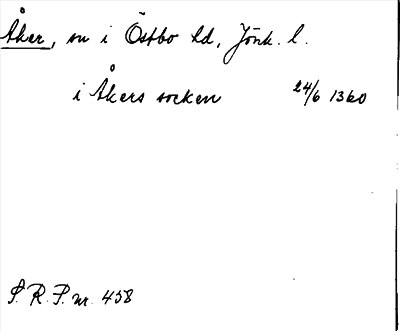 Åker, sn i Östbo hd, Jönk. l.
i Åkers socken 24/6 1360
S. R. P. nr. 458